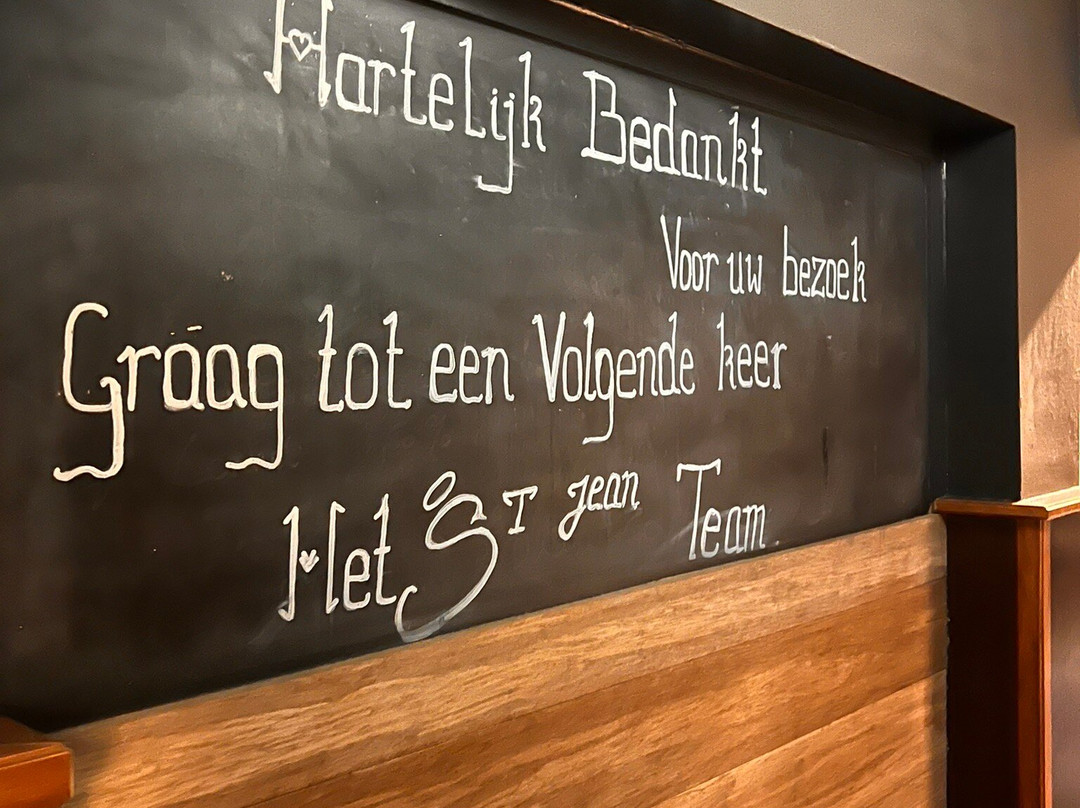 Hartelijk Bedankt
Voor uw bezoek
Graag tot een Volgende keer
Het ST jean Team